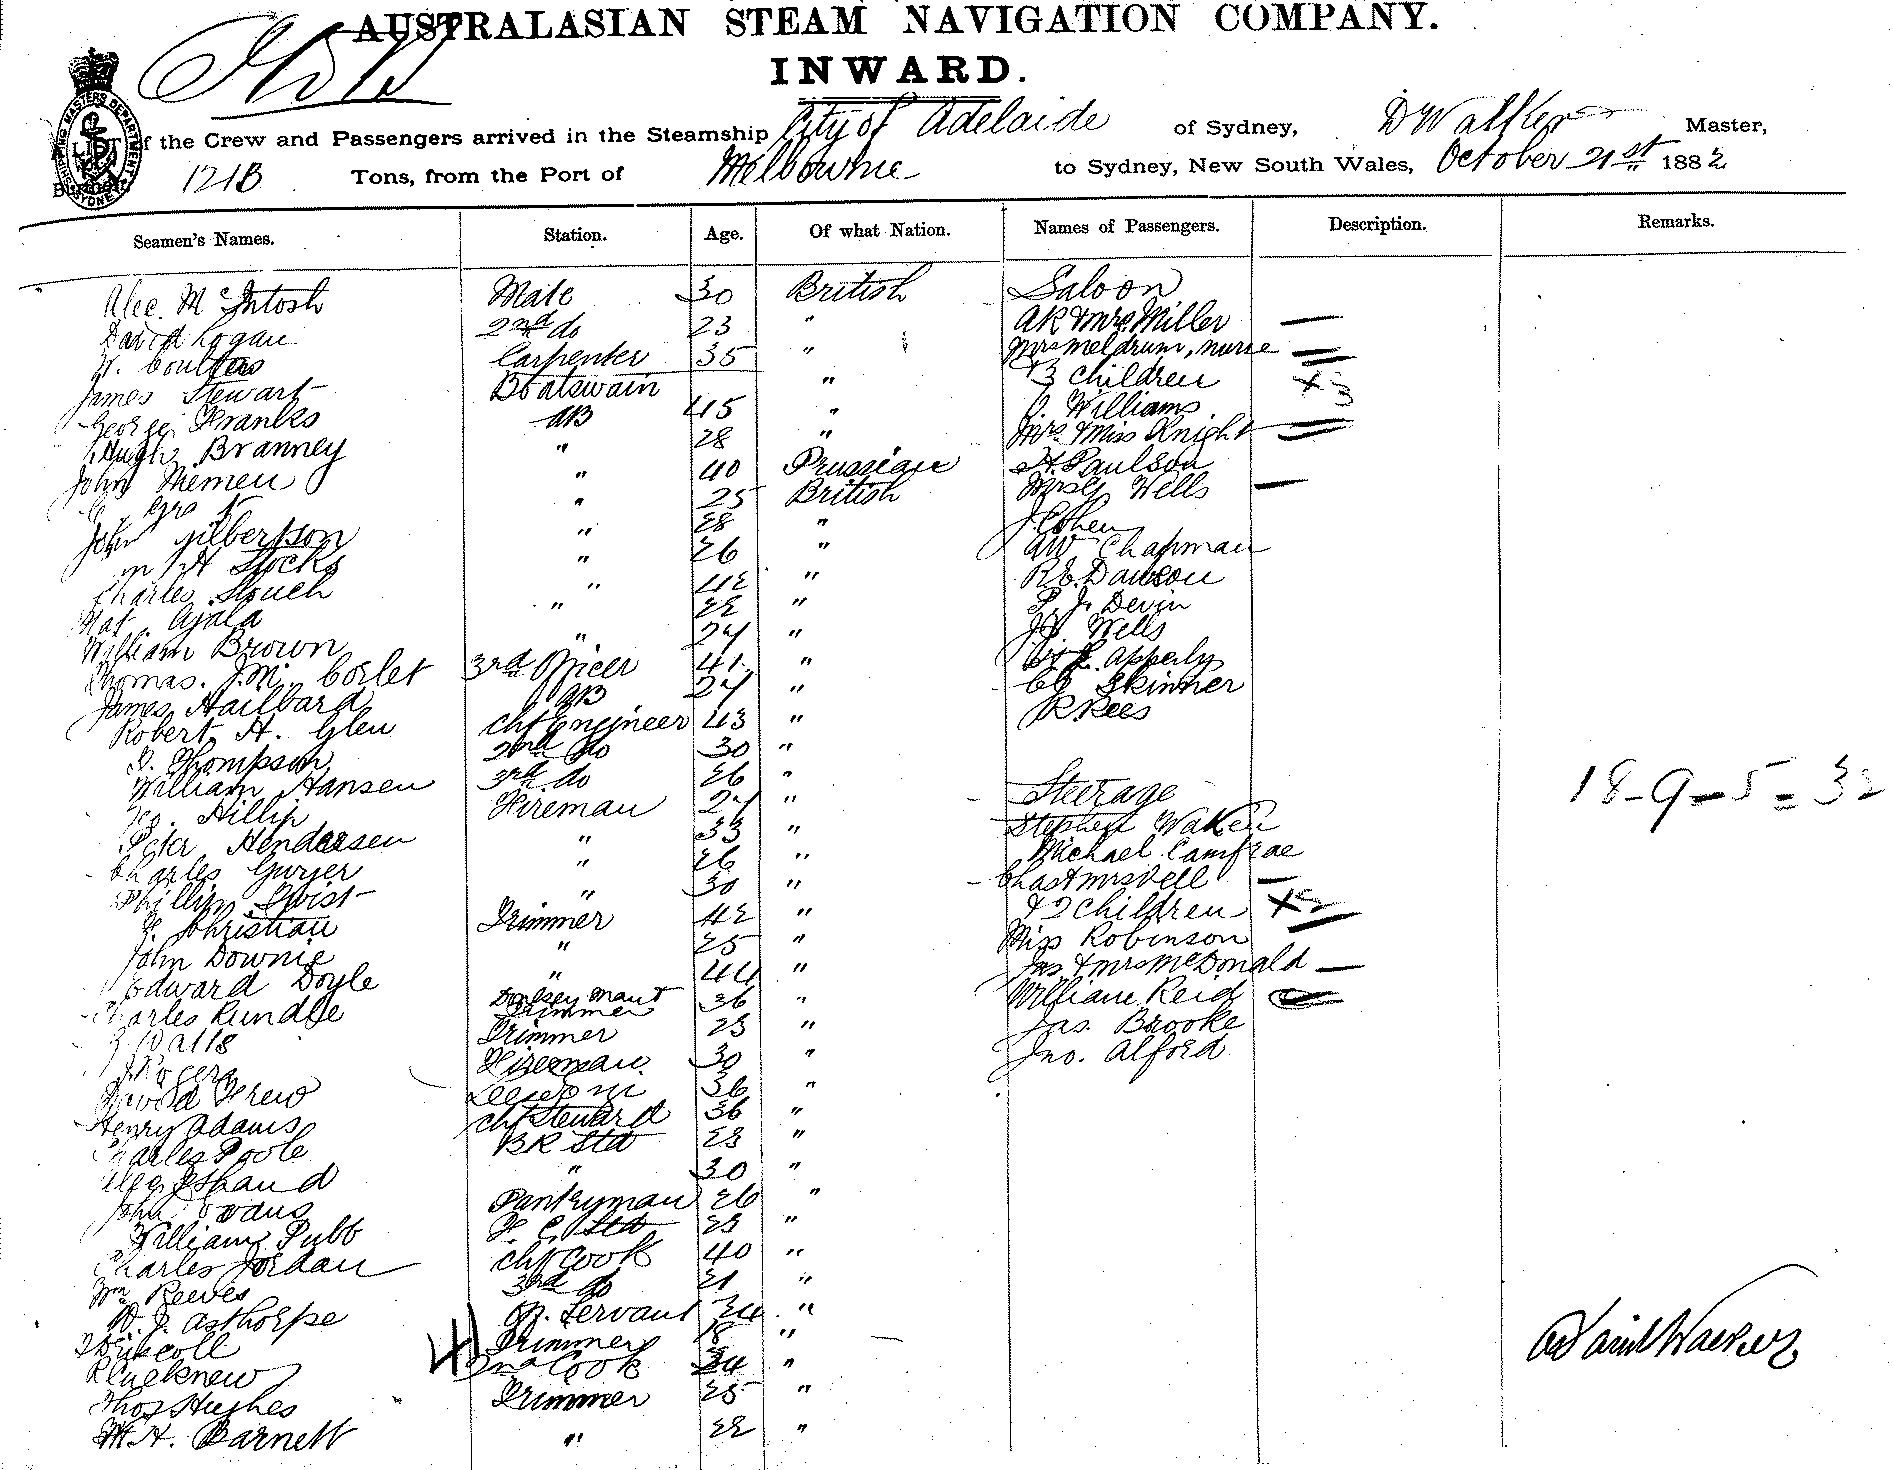 AUSTRALASIAN STEAM NAVIGATION COMPANY.
INWARD.
of the Crew and Passengers arrived in the Steamship City of Adelaide of Sydney, D Walker Master,
Burthen 1218 Tons, from the Port of Melbourne to Sydney, New South Wales, October 21st 1882
Seamen's Names. Station. Age. Of what Nation. Names of Passengers. Description. Remarks.
Alec. McIntosh Mate 30 British Saloon
David Logan 2nd do 23 " AK & Mrs Miller
Coulter Carpenter 35 " Mrs Meldrum, nurse
James Stewart Boatswain " 3 children
George Franks AB 45 " Williams
Hugh Branney " 28 " Mrs & Miss Knight
John Themen " 40 Prussian H. Paulson
" 25 British Mrs Wells
John Gilbertson " 28 " J Cohen
Stocks " 26 " AW Chapman
Charles Slouch " 42 " R E. Dawson
Mat. Ajala " 22 " P. J. Devin
William Brown " 27 " Wells
Thomas. J.M. Corlet 3rd Officer 41 " Apperly
James Hailbard AB 27 " Skinner
Robert H. Glen chf Engineer 43 " R Rees
Thompson 2nd do 30 "
William Hansen 3rd do 26 " Steerage
Geo. Hillip Fireman 27 " Stephen Waken
Peter Hendersen " 33 " Michael Camfrae
Charles Gwyer " 26 " Chas & Mrs Dell
Phillip Twist " 30 " & 2 children
Christian Trimmer 42 " Miss Robinson
John Downie " 25 " Jas & Mrs McDonald
Edward Doyle " 44 " William Reid
Charles Rundle Donkeyman & Trimmer 36 " Jas. Brooke
Trimmer 23 " Jno. Alford
J Rogers Fireman 30 "
David Frew 36 "
Henry Adams chf Steward 36 "
Charles Poole BR Std 23 "
" 30 "
John Evans Pantryman 26 "
William Pubb F. C. Std 23 "
Charles Jordan chf Cook 40 "
Wm Reeves 3rd do 21 "
W. J. Asthorpe Servant 34 "
Driscoll Trimmer 18 "
R Cucknew 2nd Cook 34 "
Thos Hughes Trimmer 25 "
M. H. Barnett " 22 "
18-9-5=32
David Walker